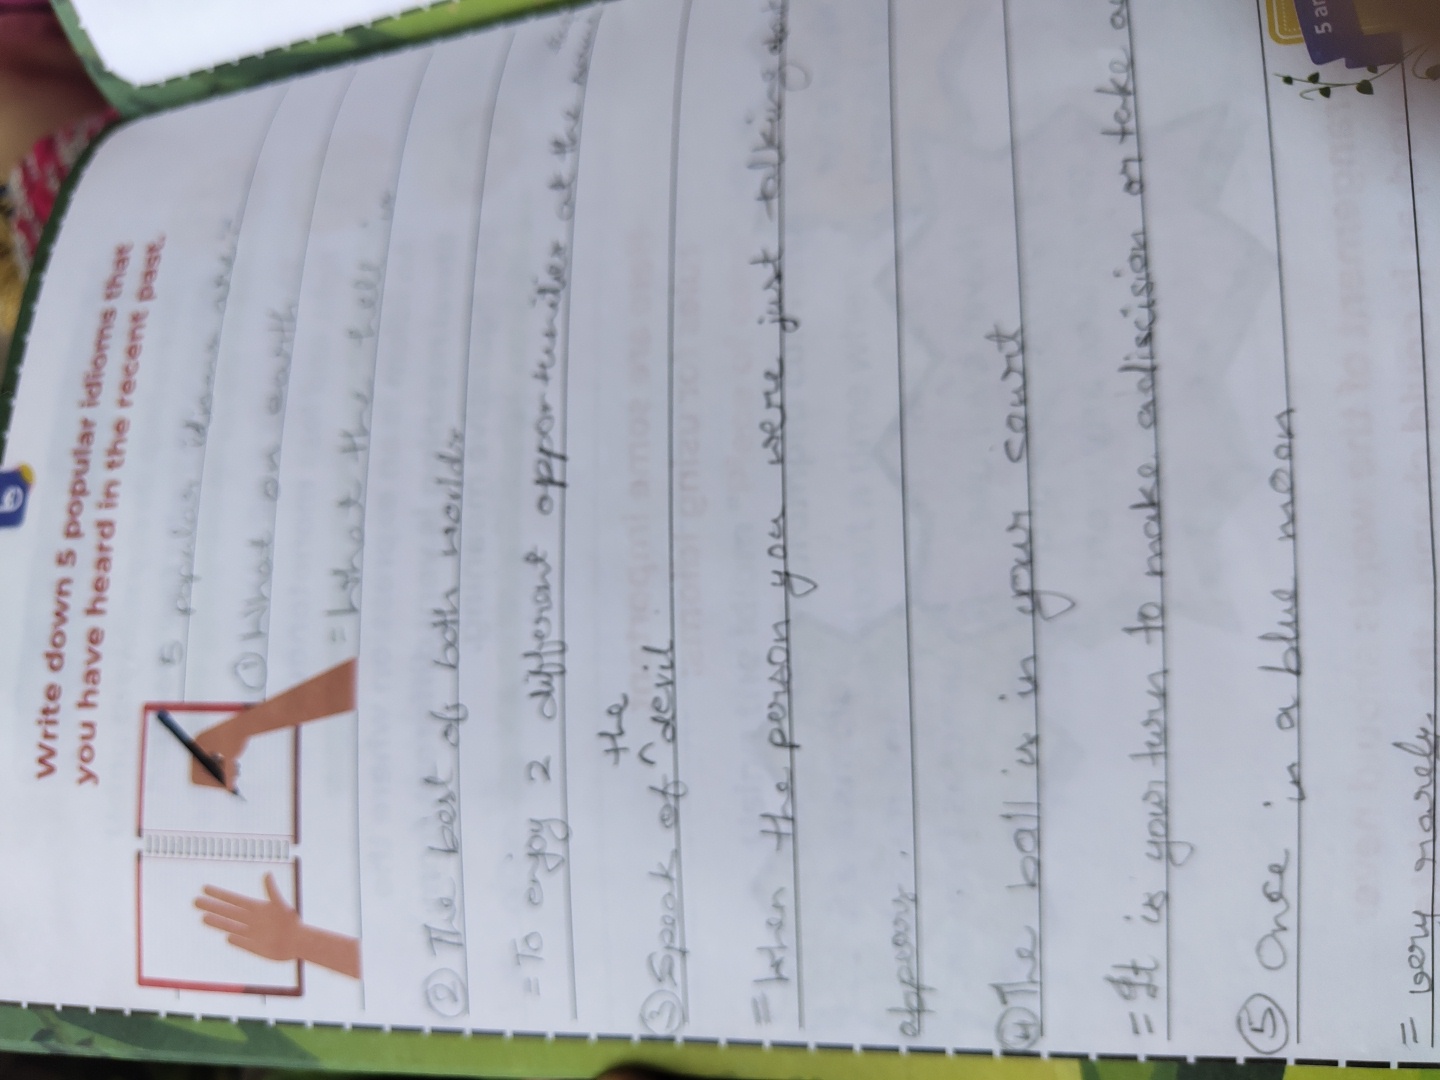 6
Write down 5 popular idioms that
you have heard in the recent past.
5 popular idioms are:
① What on earth
= What the hell is
② The best of both worlds
= To enjoy 2 different opportunities at the same
the
③ Speak of ^ devil
= When the person you were just talking
appears.
④ The ball is in your court
= It is your turn to make adiscision or take
⑤ Once in a blue moon
= very rarely.
5